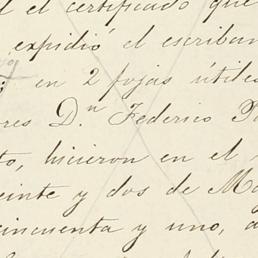 el certificado que
expidió el escriban
en 2 fojas útiles
res Dn Federico
to, hicieron en el
einte y dos de Ma
incuenta y uno, a